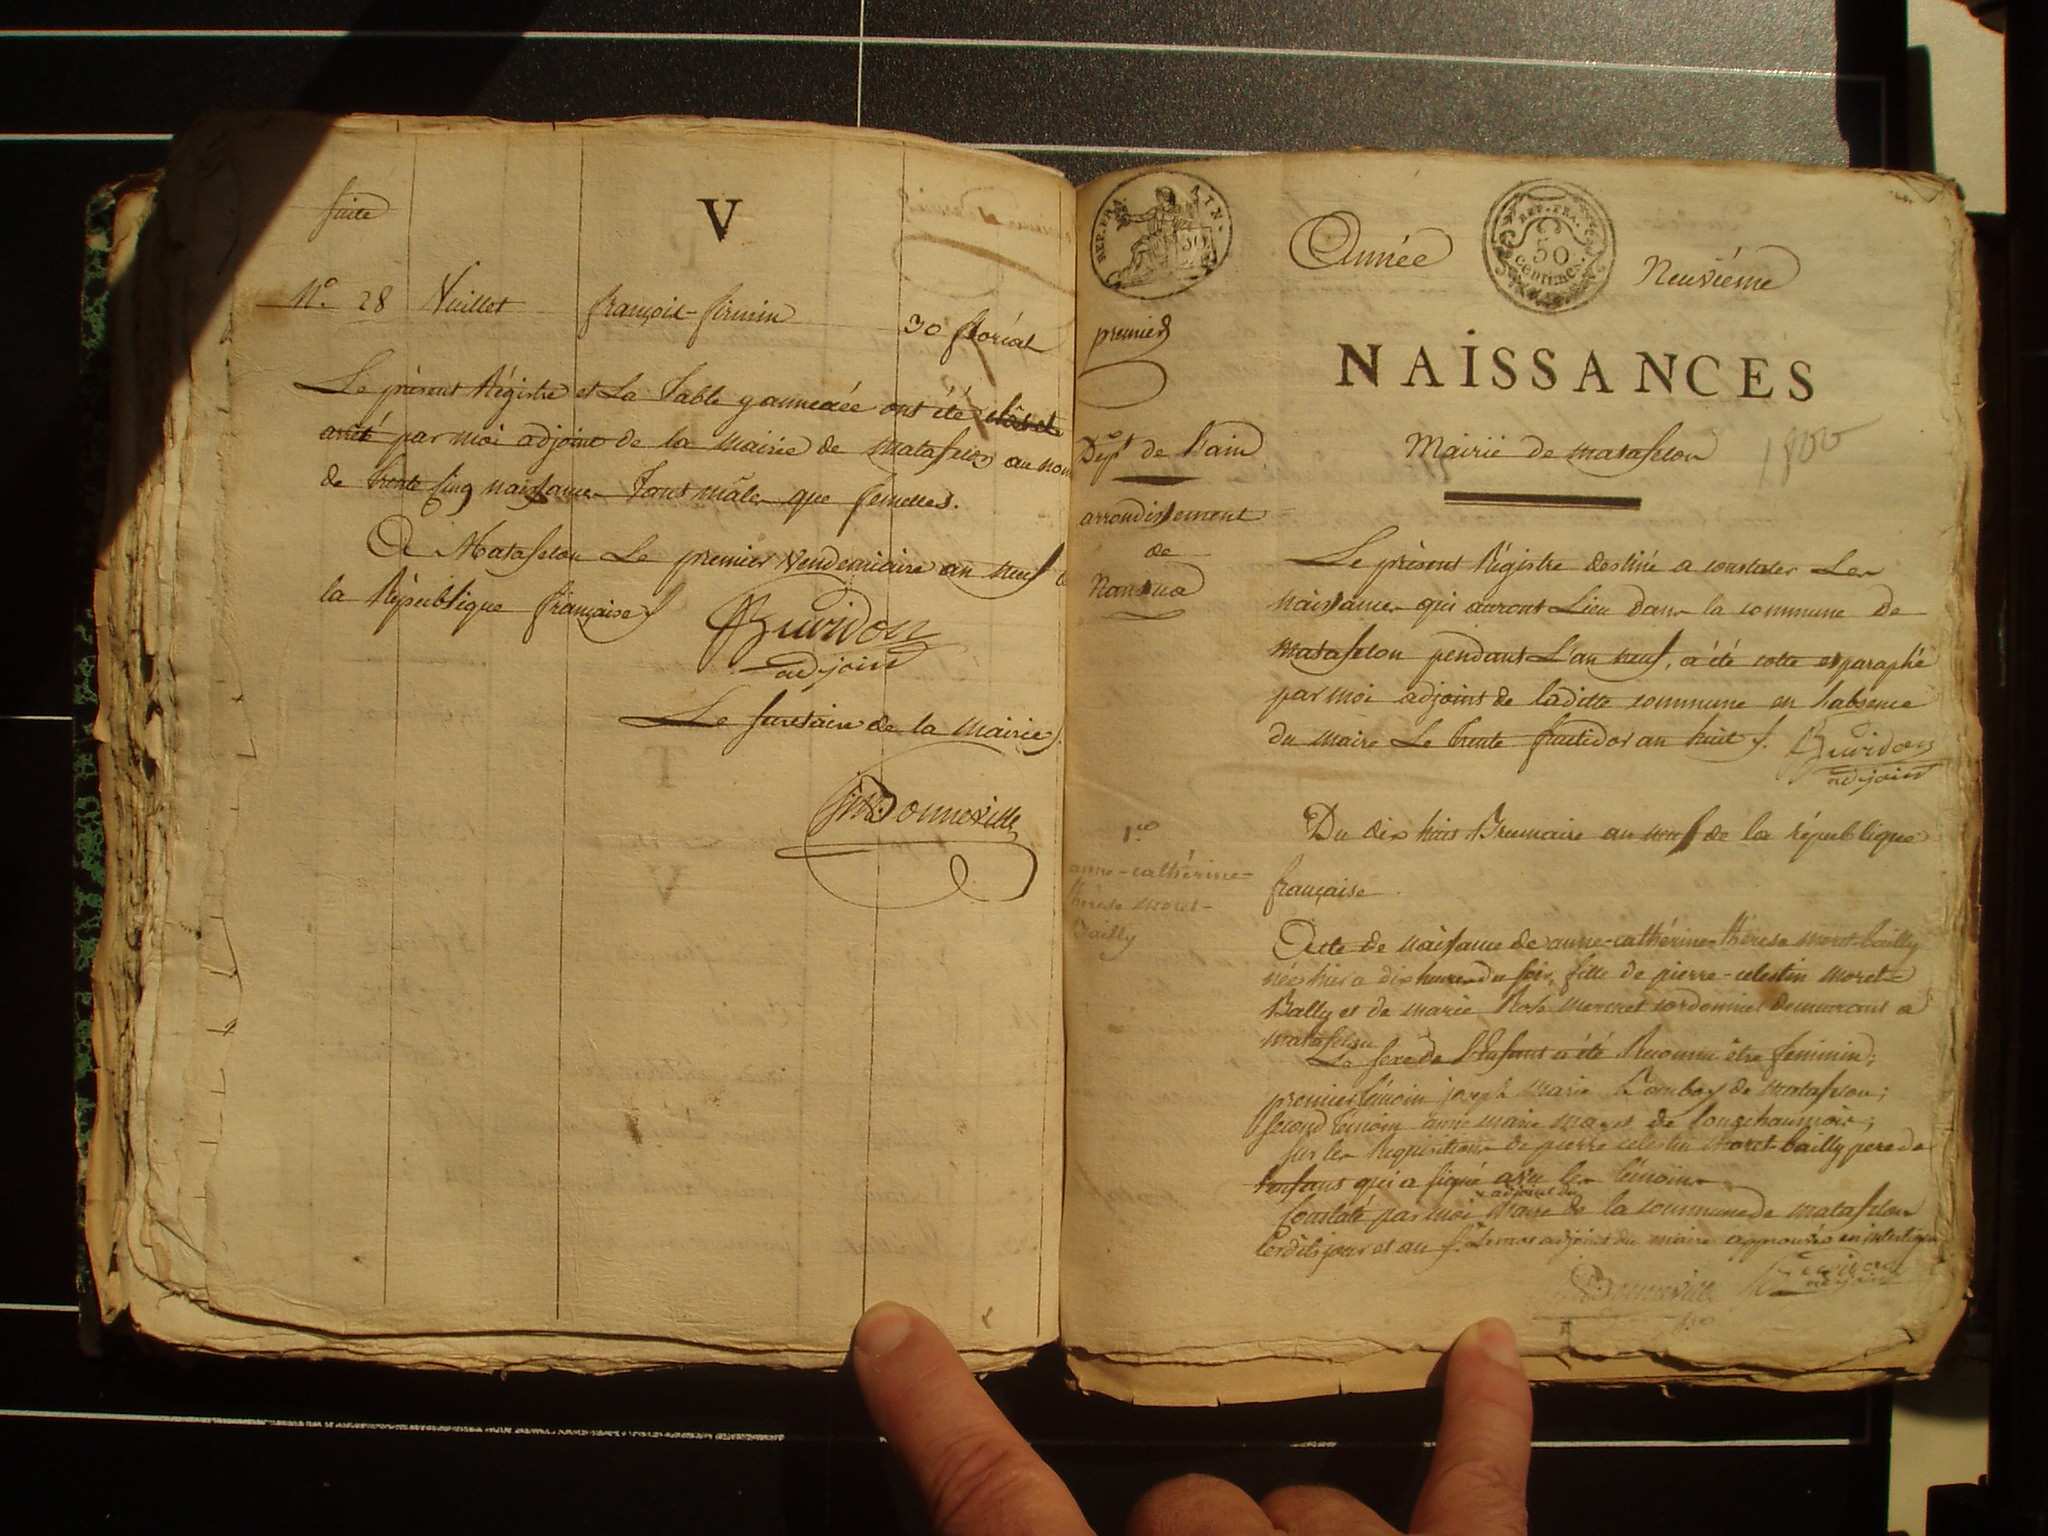 Suite
V
N.o 28 Vuillet françois-firmin 30 floréal
Le présent Régistre et La Table y annexée ont été clos et
arrêté par moi adjoint de la mairie de Matafelon au nom
de trente cinq naissances Tant mâles que femelles.
A Matafelon Le premier Vendemiaire an neuf de
la République française
Gwidon
adjoint
Le Secretaire de la mairie
Bonneville
REP. FRA. AIN.
50
premier
Année
REP. FRA.
50
centimes.
Neuvième
NAISSANCES
Mairie de matafelon
1800
Dep.t de l'ain
arrondissement
de
Nantua
Le présent Régistre destiné a constater Les
naissances qui auront Lieu dans la commune de
Matafelon pendant L'an neuf, a été cotté et paraphé
par moi adjoint de laditte commune en l'absence
du maire Le trente fructidor an huit
Gwidon
adjoint
1.re
anne-cathérine-
thérese moret-
Bailly
Du dix huit Brumaire an neuf de la république
française
Acte de naissance de anne-cathérine-thérese moret-bailly
née hier a dix heures du soir, fille de pierre-celestin moret-
Bally et de marie Rose mercret cordonnier demeurant a
matafelon
Le sexe de l'Enfant a été Reconnu être feminin;
premier témoin joseph marie de matafelon;
Second témoin anne marie de longchaumois;
Sur les Requisitions de pierre celestin Moret-bailly pere de
l'enfant qui a signé avec les témoins
adjoint du
Constaté par moi Maire de la commune de matafelon
Lesdits jour et an Le mot adjoint du maire approuvés en interligne
Bonneville
Gwidon
adjoint